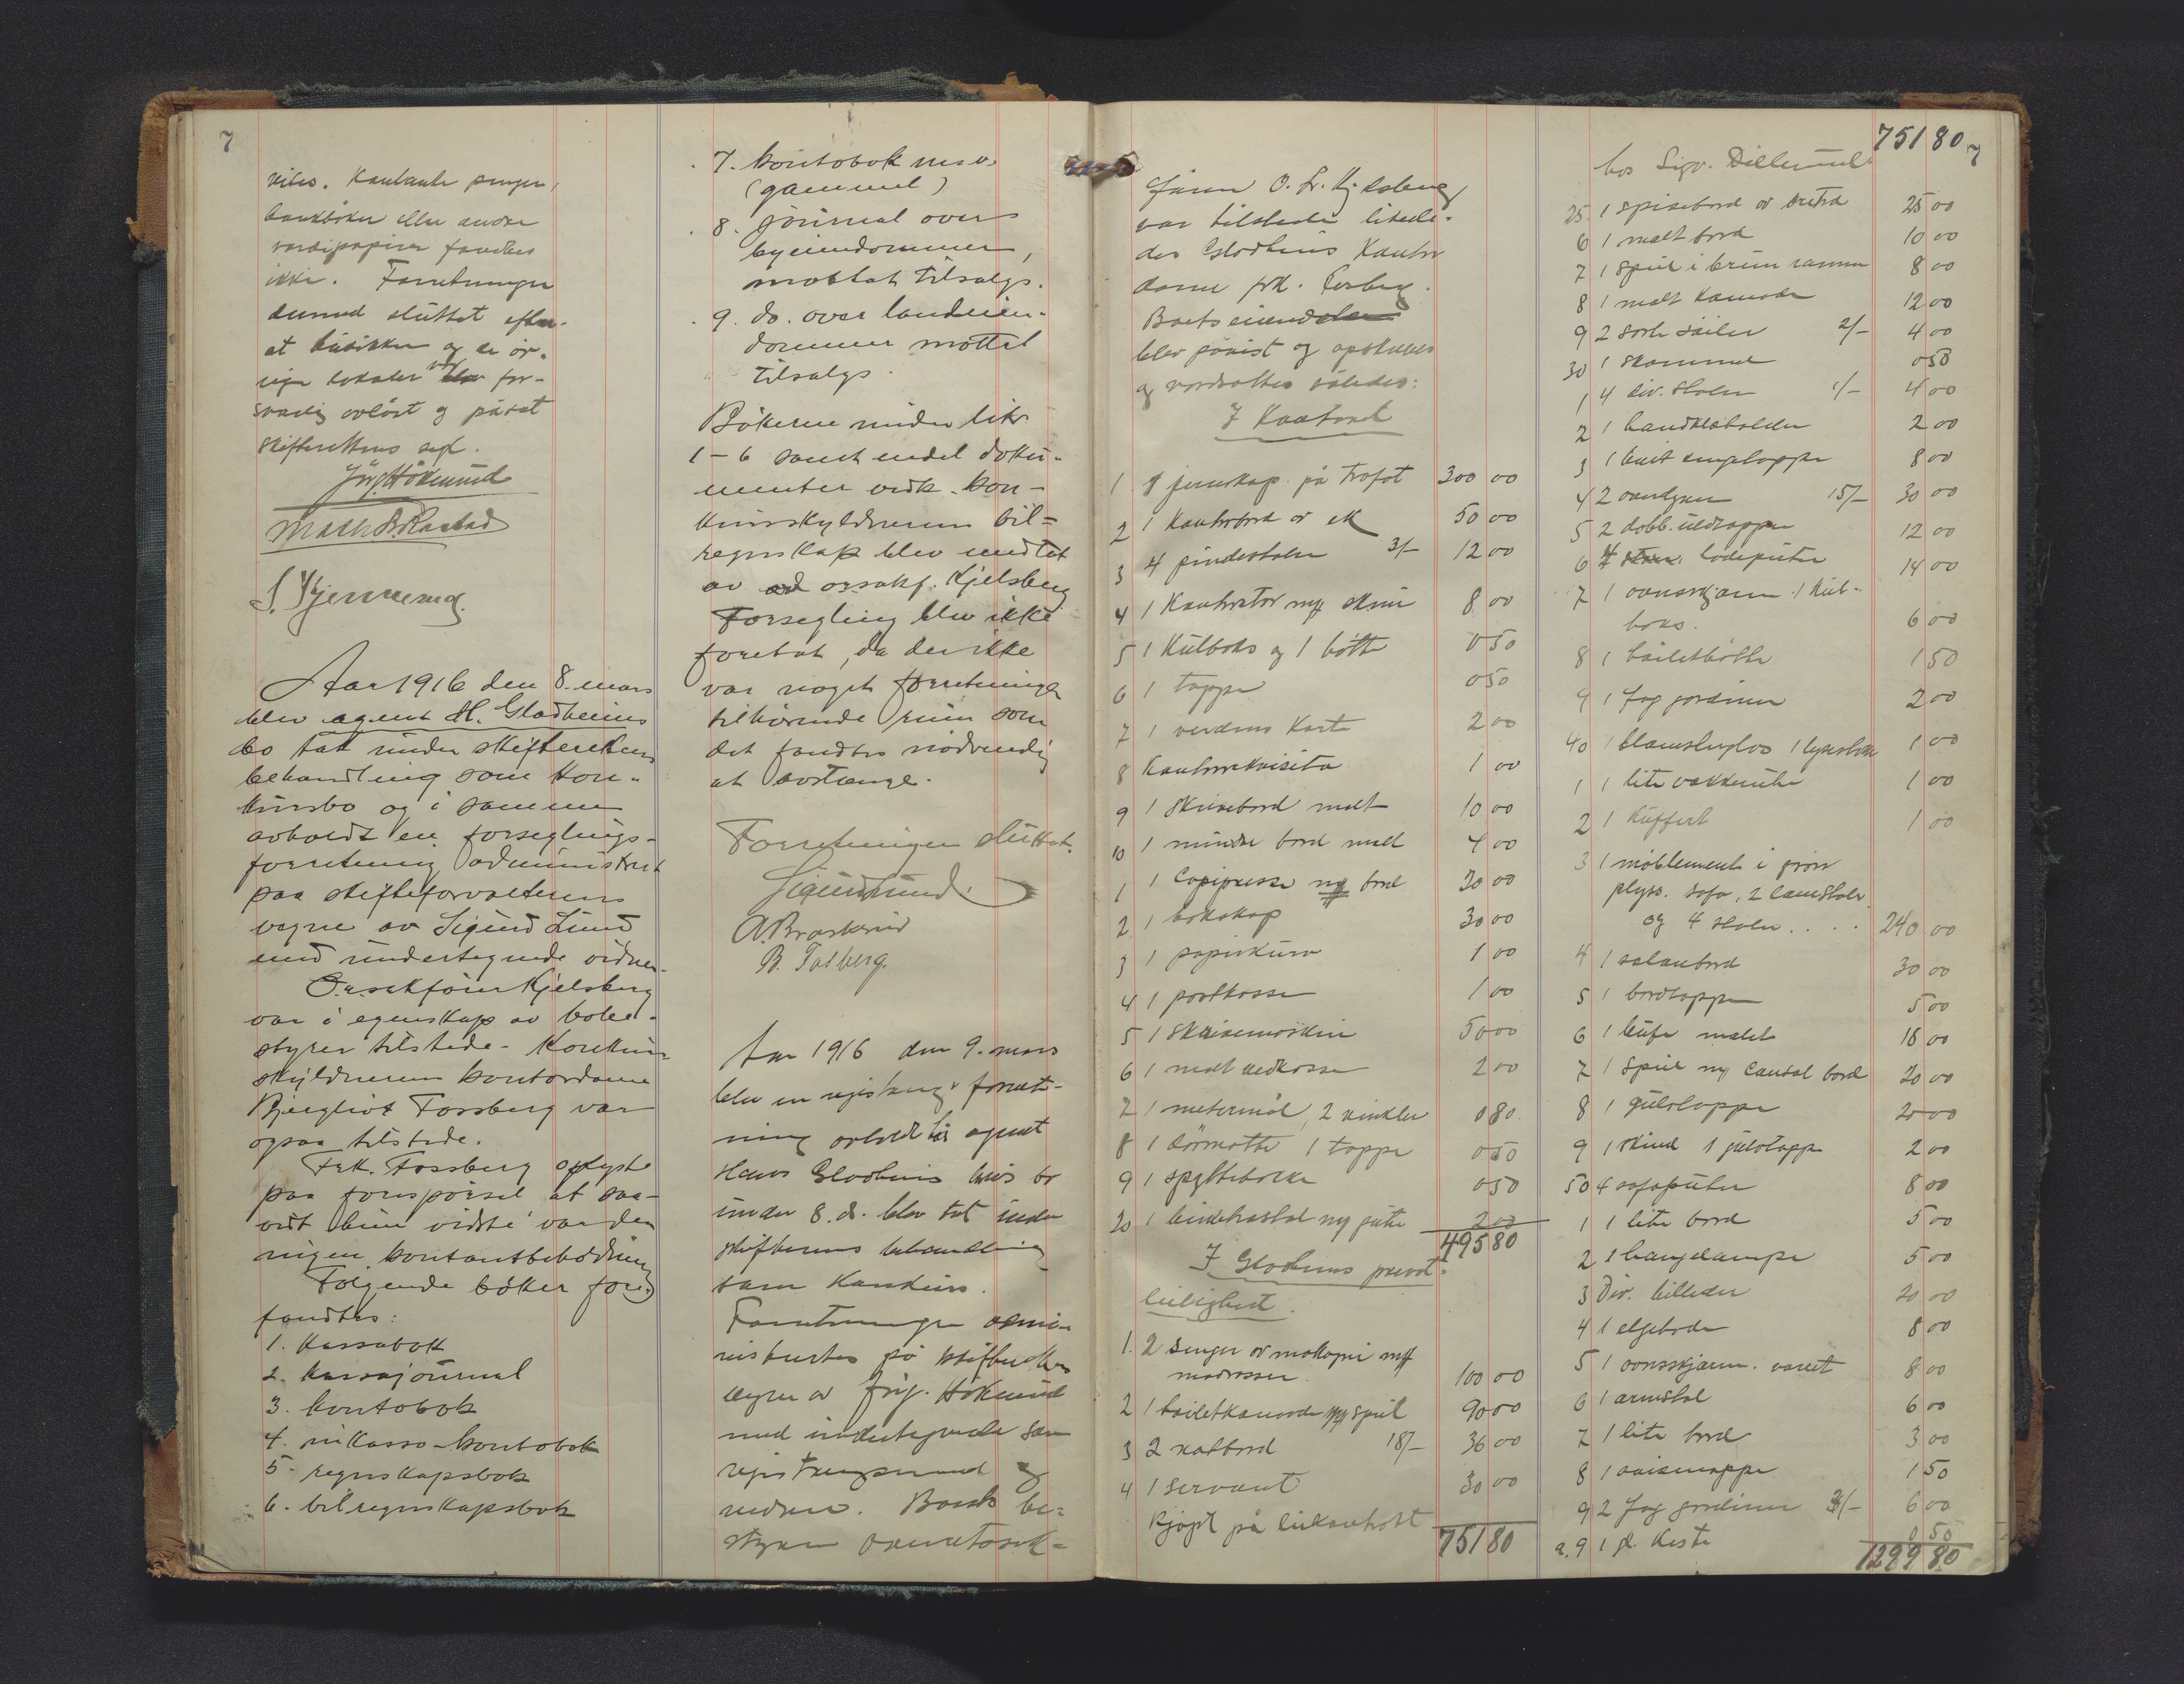 7
vises. Kontante penger,
bankbøker eller andre
værdipapirer fandtes
ikke. Forretningen
dermed sluttet efter-
at butikken og de øv-
rige lokaler var for-
svarlig avlåst og påsat
skifterettens segl.
Jørg. Høklund
Math. B. Rastad
Aar 1916 den 8. mars
blev agent H. Gladheims
bo tat under skifterettens
behandling som kon-
kursbo og i samme
avholdt en forseglings-
forretning administrert
paa skifteforvalterens
vegne av Sigurd Lund
med undertegnede vidner.
O.r.sakfører Kjelsberg
var i egenskap av bobe-
styrer tilstede. Konkurs-
skyldnerens kontordame
Bjergliot Fossberg var
ogsaa tilstede.
Frk. Fossberg oplyste
paa forespørsel at saa-
vidt hun vidste var der
ingen kontantbeholdning
Følgende bøker fore-
fandtes:
1. Kassabok
2. kassajournal
3. kontobok
4. inkasso-kontobok
5. regnskapsbok
6. bilregnskapsbok
7. kontobok mrs.
(gammel)
8. journal over
byeiendommer,
mottat tilsalgs.
9. do. over landeien-
dommer mottat
tilsalgs.
Bøkerne under litr
1-6 samt endel doku-
menter vedk. kon-
kursskyldnerens bil-
regnskap blev medtat
av orsakf. Kjelsberg
Forsegling blev ikke
foretat, da der ikke
var noget forretningen
tilhørende rum som
det fandtes nødvendig
at avstænge.
Forretningen sluttet.
Sigurd Lund.
A. Braskerud
B. Fosberg.
Aar 1916 den 9. mars
blev en registrerings forret-
ning avholdt hos agent
Hans Gladheim hvis bo
under 8. ds. blev tat under
skifterettens behandling
som konkurs.
Forretningen admi-
nistrertes på skifterettens
vegne av Jørg. Høklund
med undertegnede som
registreringsmænd og
vidner. Boets be-
styrer overretssak-
fører O. Fr. Kjelsberg
var tilstede likele-
des Gladheims kontor
dame frk. Fosberg.
Boets eiendeler
blev påvist og opskrevet
og værdsattes således:
I Kontoret
1 1 jernskap på træfot 300 00
2 1 kontorbord av ek 50 00
3 4 pindestoler 3/- 12 00
4 1 Kontorstol m/ skinn 8 00
5 1 Kulboks og 1 bøtte 0 50
6 1 teppe 0 50
7 1 verdens kart 2 00
8 kontorrekvisita 1 00
9 1 skrivebord malt 10 00
10 1 mindre bord malt 4 00
1 1 Copipresse m/ bord 20 00
2 1 bokskap 30 00
3 1 papirkurv 1 00
4 1 postkasse 1 00
5 1 skrivemaskin 50 00
6 1 malt vedkasse 2 00
7 1 metermål, 2 vinkler 0 80
8 1 dørmatte 1 teppe 0 50
9 1 spyttebakke 0 50
20 1 birketræstol m/ pute 2 00
495 80
I Gladheims privat-
leilighet.
1. 2 senger av mahogni m/
madrasser 100 00
2 1 toiletkomode m/ speil 90 00
3 2 natbord 18/- 36 00
4 1 servant 30 00
Kjøpt på leiekontrakt
751 80
751 80
7
hos Sigv. Dillerud
25. 1 spisebord av bretræ 25 00
6 1 malt bord 10 00
7 1 speil i brun ramme 8 00
8 1 malt komode 12 00
9 2 sorte søiler 2/- 4 00
30 1 skammel 0 50
1 4 div. stoler 1/- 4 00
2 1 haandklæholder 2 00
3 1 hvit sengeteppe 8 00
4 2 overdyner 15/- 30 00
5 2 dobb. uldtepper 12 00
6 4 hodeputer 14 00
7 1 ovnsskjerm 1 kul-
boks. 6 00
8 1 toiletbøtte 1 50
9 1 fag gardiner 2 00
40 1 blomsterglas 1 lysestake 1 00
1 1 lite vækkerur 1 00
2 1 kuffert 1 00
3 1 møblement i grøn
plyss. sofa, 2 lænstoler
og 4 stoler . . . . 240 00
4 1 salonbord 30 00
5 1 bordteppe 5 00
6 1 buffe malet 18 00
7 1 speil m/ consol bord 20 00
8 1 gulvteppe 20 00
9 1 skind 1 gulvteppe 2 00
50 4 sofaputer 8 00
1 1 lite bord 5 00
2 1 hængelampe 5 00
3 Div. billeder 20 00
4 1 elgehode 8 00
5 1 ovnsskjærm. 8 00
6 1 armstol 6 00
7 1 lite bord 3 00
8 1 avismappe 1 50
9 2 fag gardiner 3/- 6 00
a. 9 1 gl. kiste 0 50
1299 80